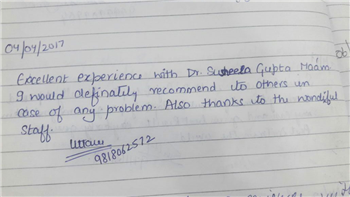 04/04/2017
Excellent experience with Dr. Susheela Gupta Maám
I would definately recommend to others in
case of any problem. Also thanks to the wondiful
staff.
9818062572